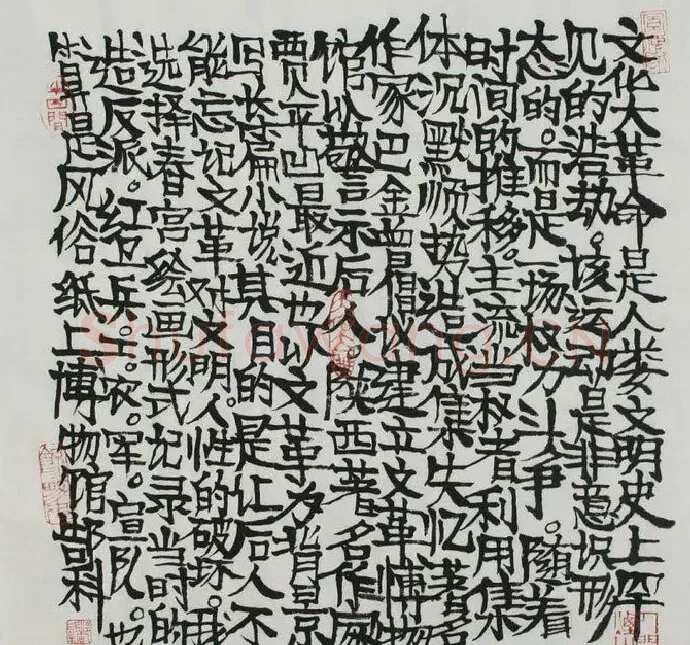 文化大革命是人类文明史上罕
见的浩劫。该运动是非意识形
态的。而是一场权力斗争。随着
时间的推移。主流当权者利用集
体沉默顺势造成集失忆著名
作家巴金曾倡议建立文革博物
馆以警示后人。陕西著名作家
贾平凹最近也以文革为背景
写长篇小说其目的是让后人不
能忘记文革对文明。人性的破坏。我
选择春宫绘画形式记录当时的
造反派。红卫兵。工。农。军。宣队。也
算是风俗纸上博物馆